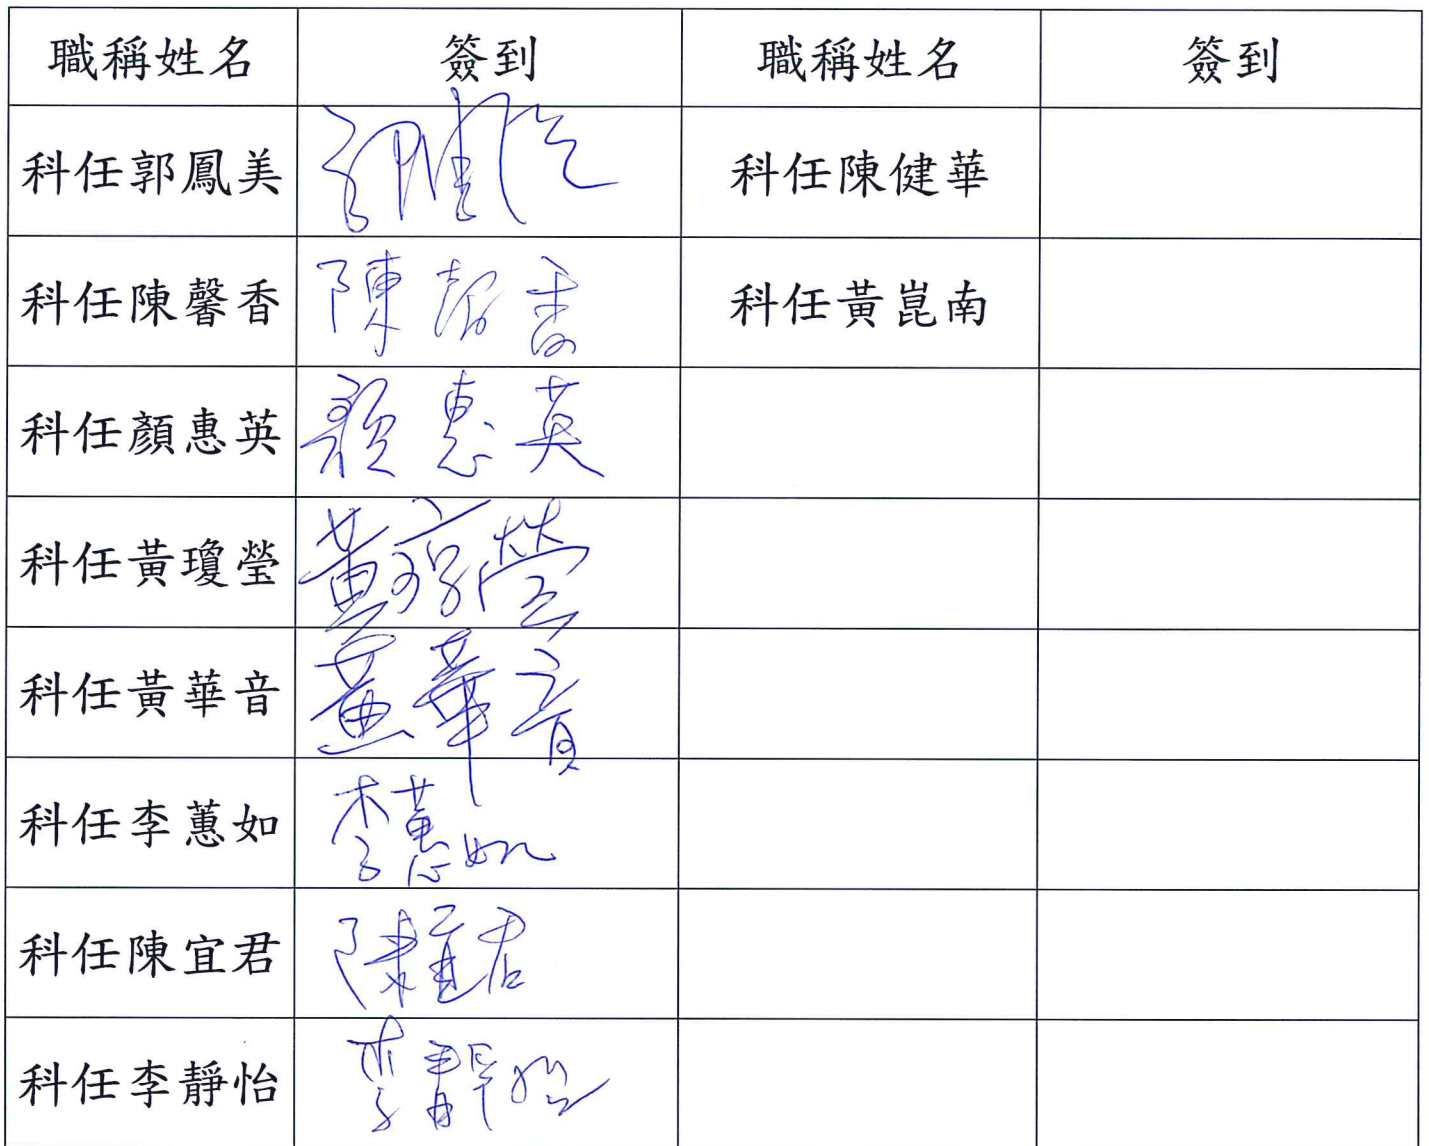 職稱姓名 簽到 職稱姓名 簽到
科任郭鳳美 科任陳健華
科任陳馨香 陳馨香 科任黃崑南
科任顏惠英 顏惠英
科任黃瓊瑩 黃瓊瑩
科任黃華音 黃華音
科任李蕙如 李蕙如
科任陳宜君 陳宜君
科任李靜怡 李靜怡